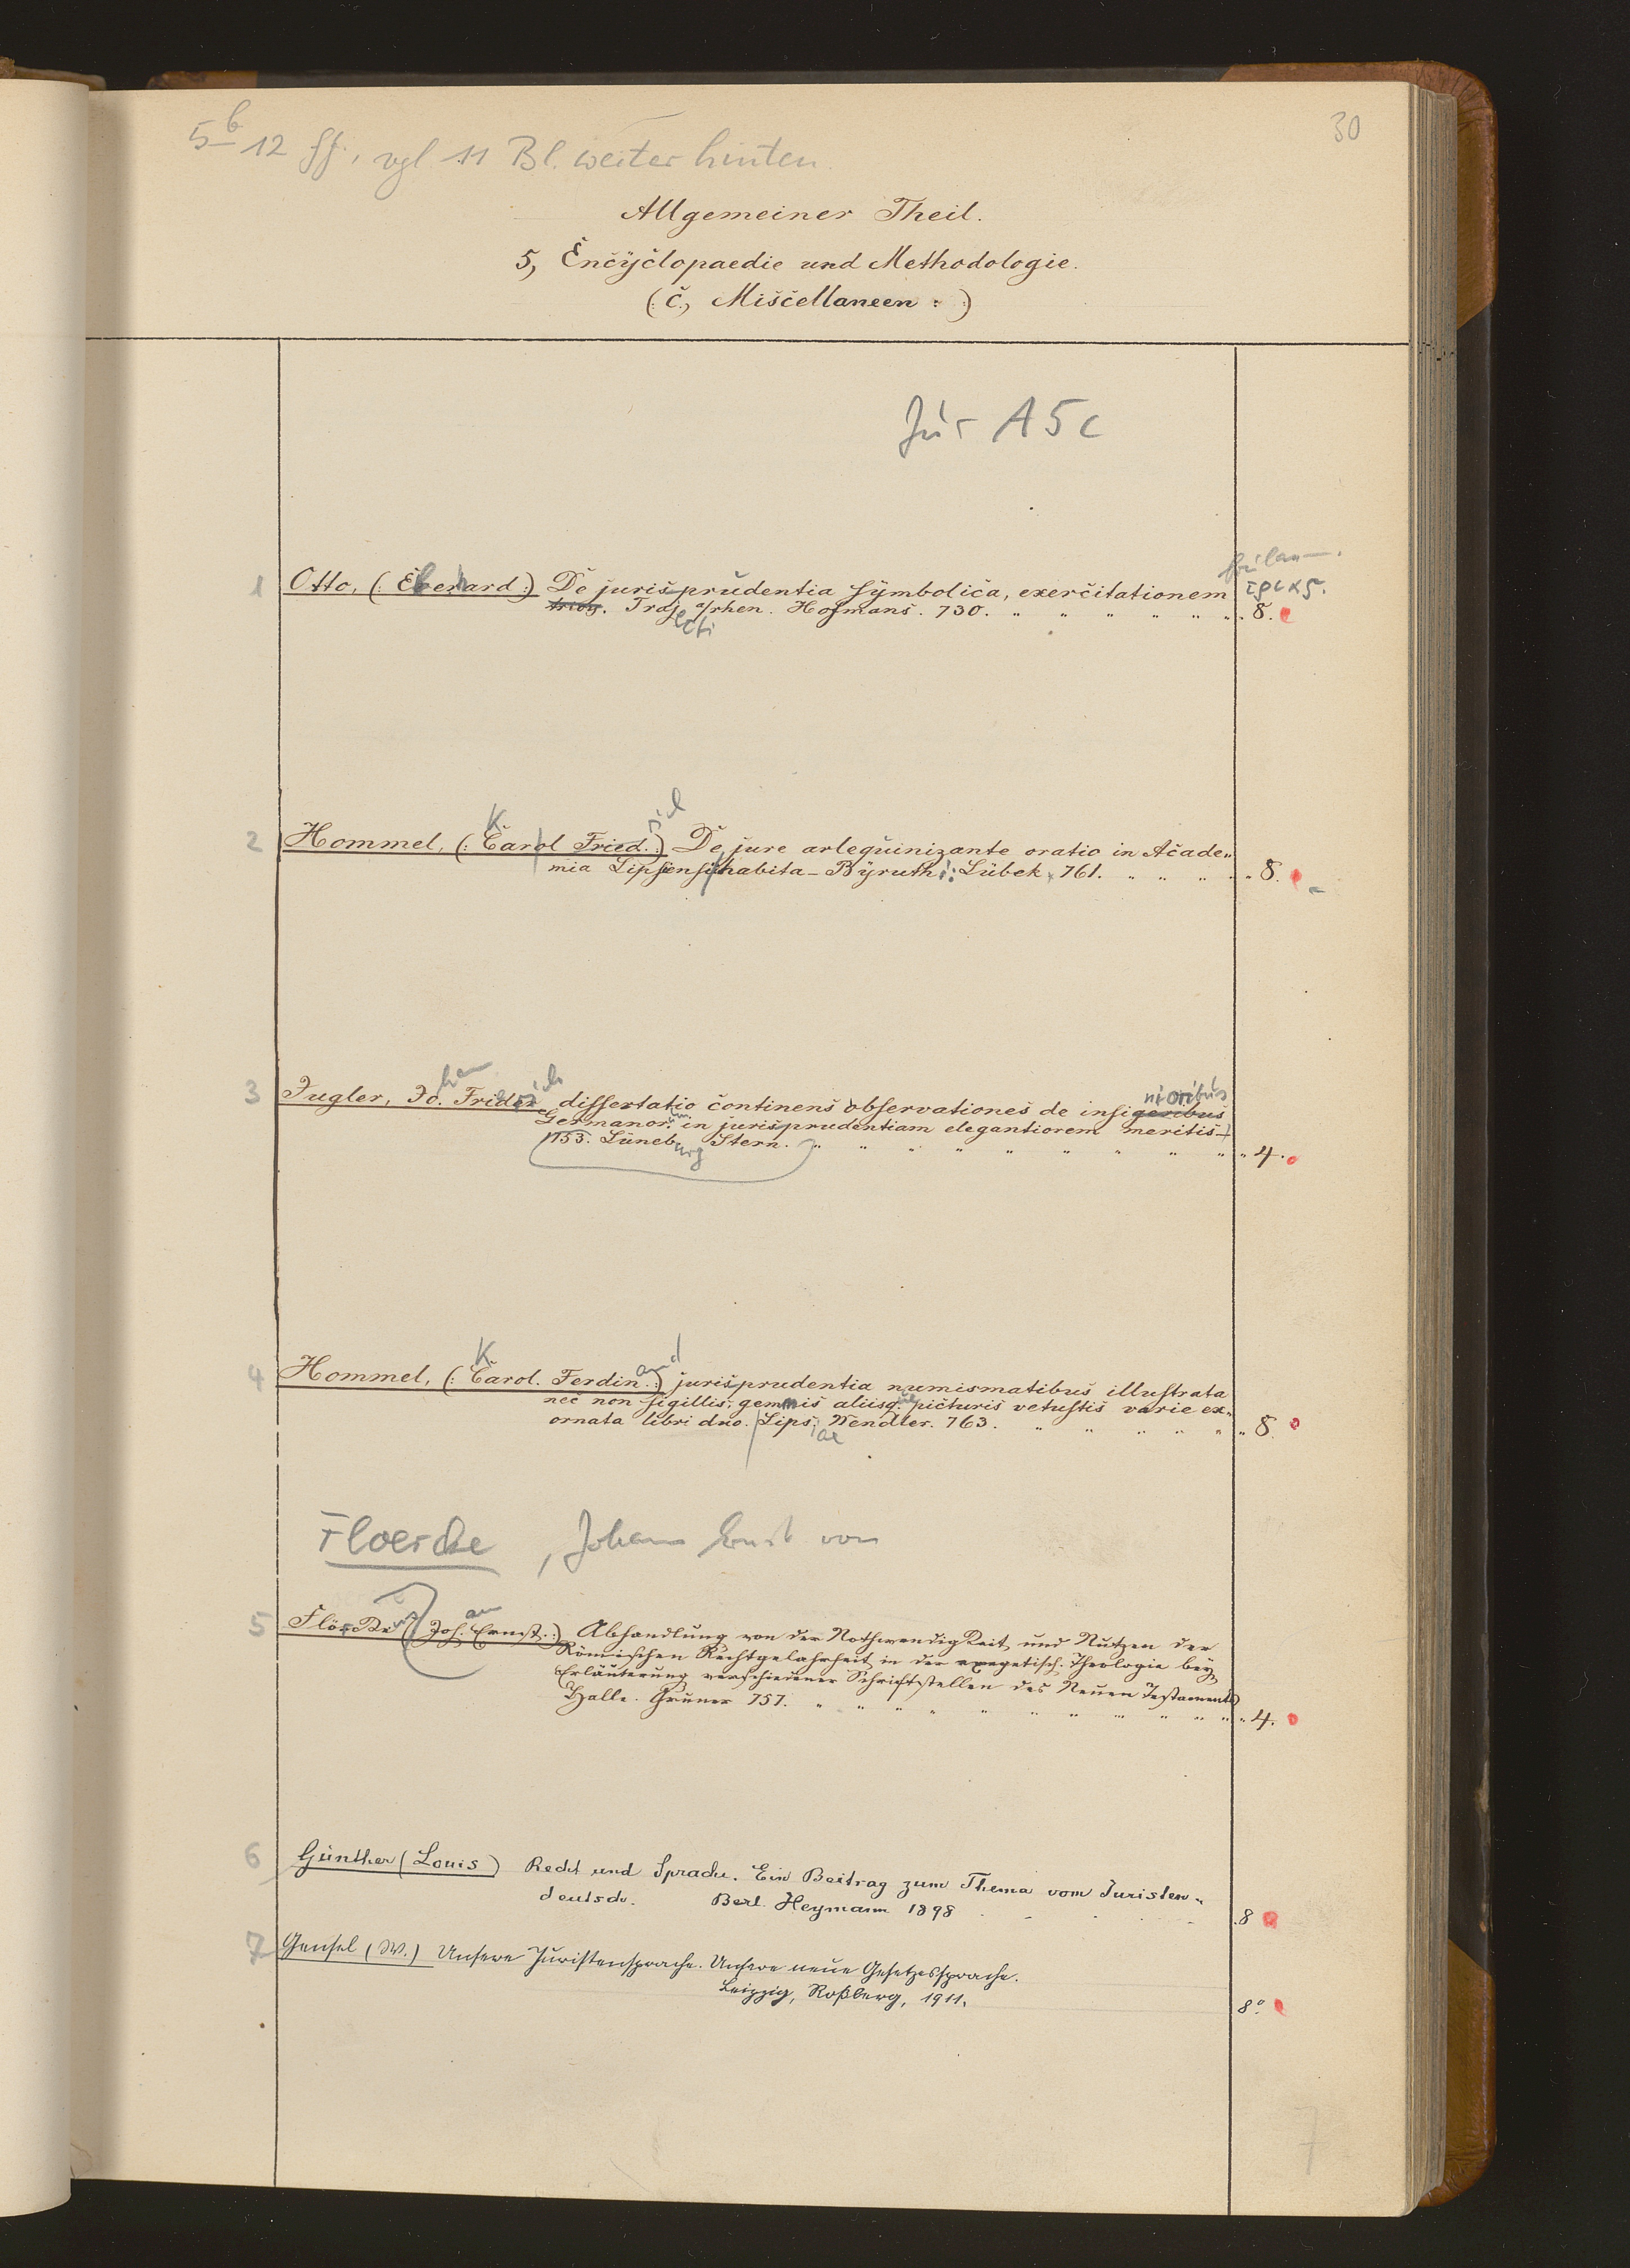 30
5b 12 ff., vgl. 11 Bl. weiter hinten
Allgemeiner Theil.
5, Encyclopaedie und Methodologie.
(: c, Miscellaneen :)
für A5c
1 Otto, (: Eberhard :) De jurisprudentia symbolica, exercitationem
trias. Trajecti a/rhen. Hofmans. 730. " " " " " " 8.
2 Hommel, (: Karol Fried. :) De jure arlequinizante oratio in Acade„
mia Lipsensi habita – Byruthi: Lübek, 761. " " " " " 8.
3 Jugler, Johan Friderich dissertatio continens observationes de insigeribus
nioribus
Germanorum in jurisprudentiam elegantiorem meritis
753. Lüneburg Stern. " " " " " " " " " " 4.
4 Hommel, (: Karol. Ferdinand :) jurisprudentia numismatibus illustrata
nec non sigillis, gemmis aliisque picturis vetustis varie ex„
ornata libri duo. Lipsiae Wendler. 763. " " " " " " 8
Floercke, Johann Ernst von
5 Flörcke (: Johan Ernst :) Abhandlung von der Nothwendigkeit und Nutzen der
Römischen Rechtgelahrheit in der exegetisch. Theologie bey
Erläuterung verschiedener Schriftstellen des Neuen Testaments
Halle. Gruner 757. " " " " " " " " " " " " 4.
6 Günther (Louis) Recht und Sprache. Ein Beitrag zum Thema vom Juristen„
deutsch. Berl. Heymann 1898 8
7 Gensel (W.) Unsere Juristensprache. Unsere neue Gesetzessprache.
Leipzig, Roßberg, 1911. 8°
7